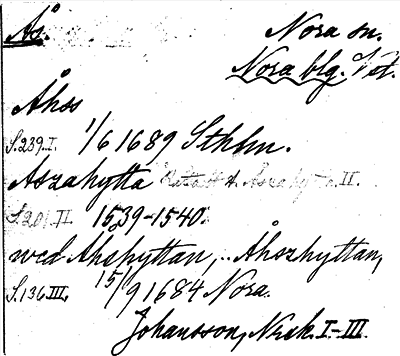 Ås. Nora sn.
Nora blg. Vstm.
Åhss
S.239.I. 1/6 1689 Sthlm.
Aszahytta II.
S.201.II. 1539-1540.
wed Åhshyttan, Åhszhyttan,
S.136.III. 15/9 1684 Nora.
Johansson, Norask. I-III.